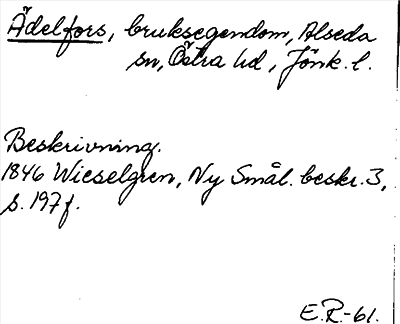 Ädelfors, bruksegendom, Alseda
sn, Östra hd, Jönk. l.
Beskrivning.
1846 Wieselgren, Ny Smål. beskr. 3,
s. 197 f.
E.R.-61.